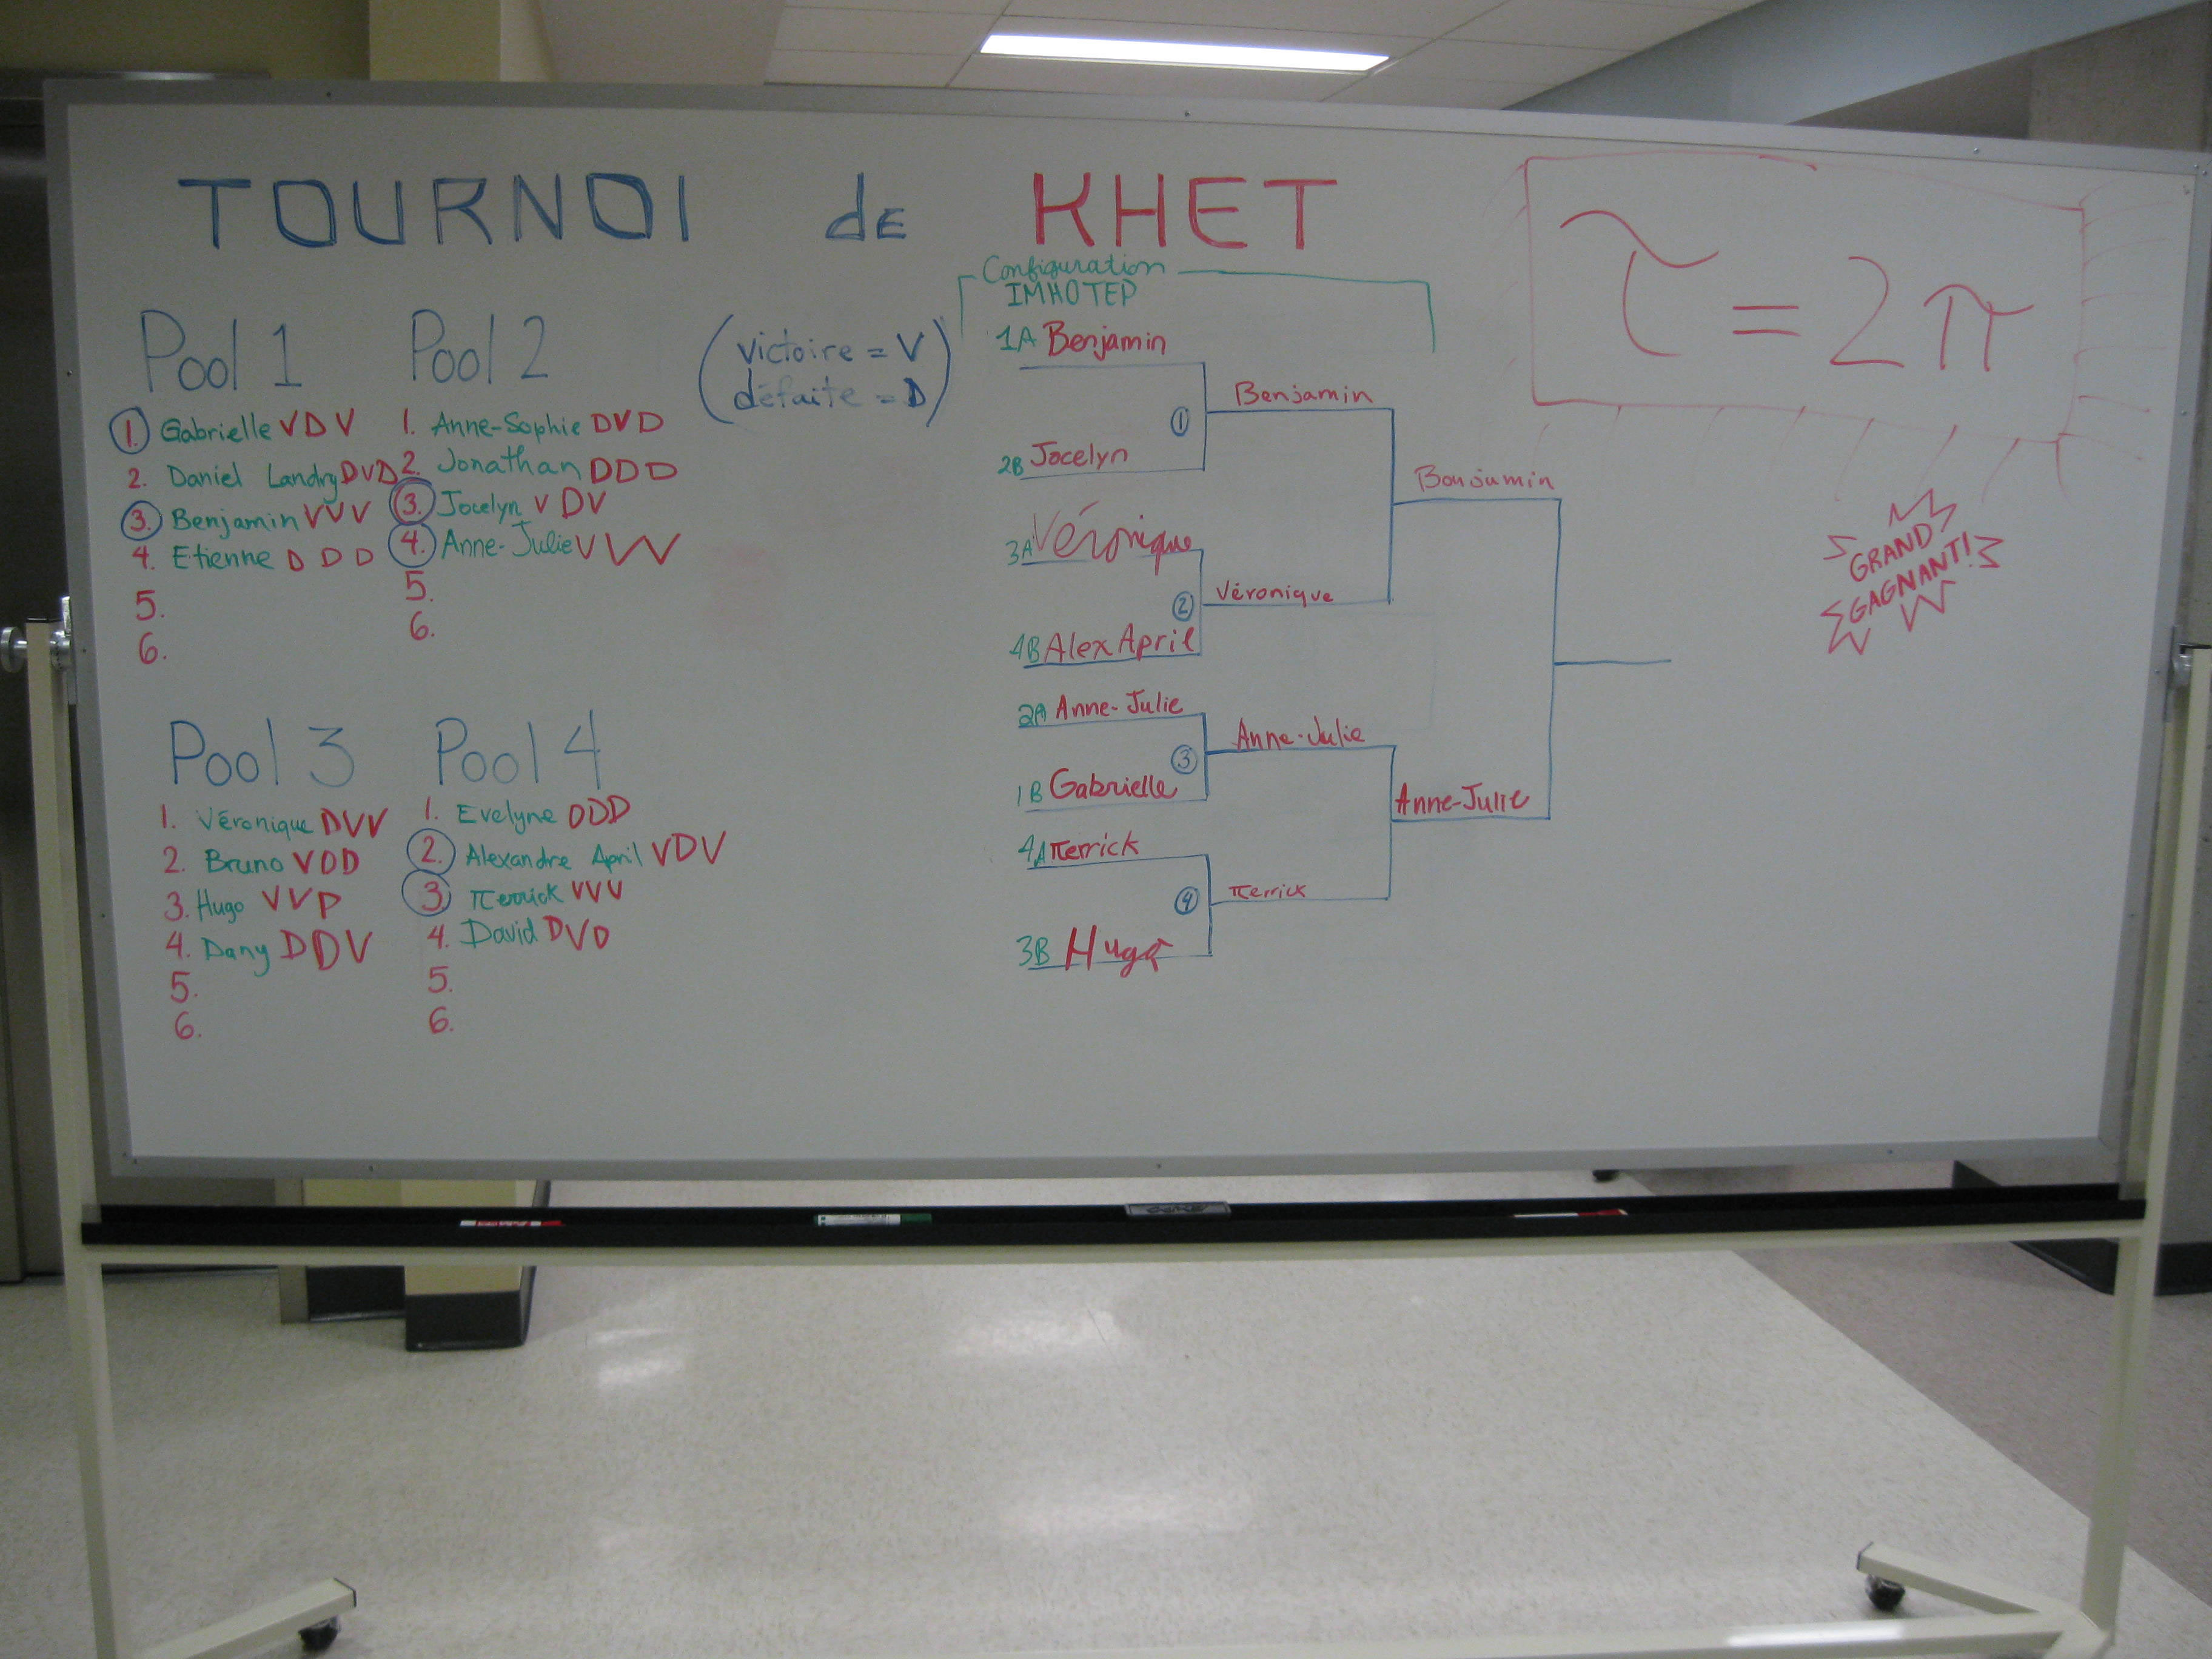 TOURNOI de KHET
Pool 1
1. Gabrielle V D V
2. Daniel Landry D V D
3. Benjamin V V V
4. Etienne D D D
5.
6.
Pool 2
1. Anne-Sophie D V D
2. Jonathan D D D
3. Jocelyn V D V
4. Anne-Julie V V V
5.
6.
(Victoire = V
défaite = D)
Pool 3
1. Véronique D V V
2. Bruno V D D
3. Hugo V V D
4. Dany D D V
5.
6.
Pool 4
1. Evelyne D D D
2. Alexandre April V D V
3. πerrick V V V
4. David D V D
5.
6.
Configuration
IMHOTEP
1A Benjamin
2B Jocelyn
3A Véronique
4B Alex April
2A Anne-Julie
1B Gabrielle
4A πerrick
3B Hugo
1
Benjamin
2
Véronique
3
Anne-Julie
4
πerrick
Benjamin
Anne-Julie
τ = 2π
GRAND
GAGNANT!